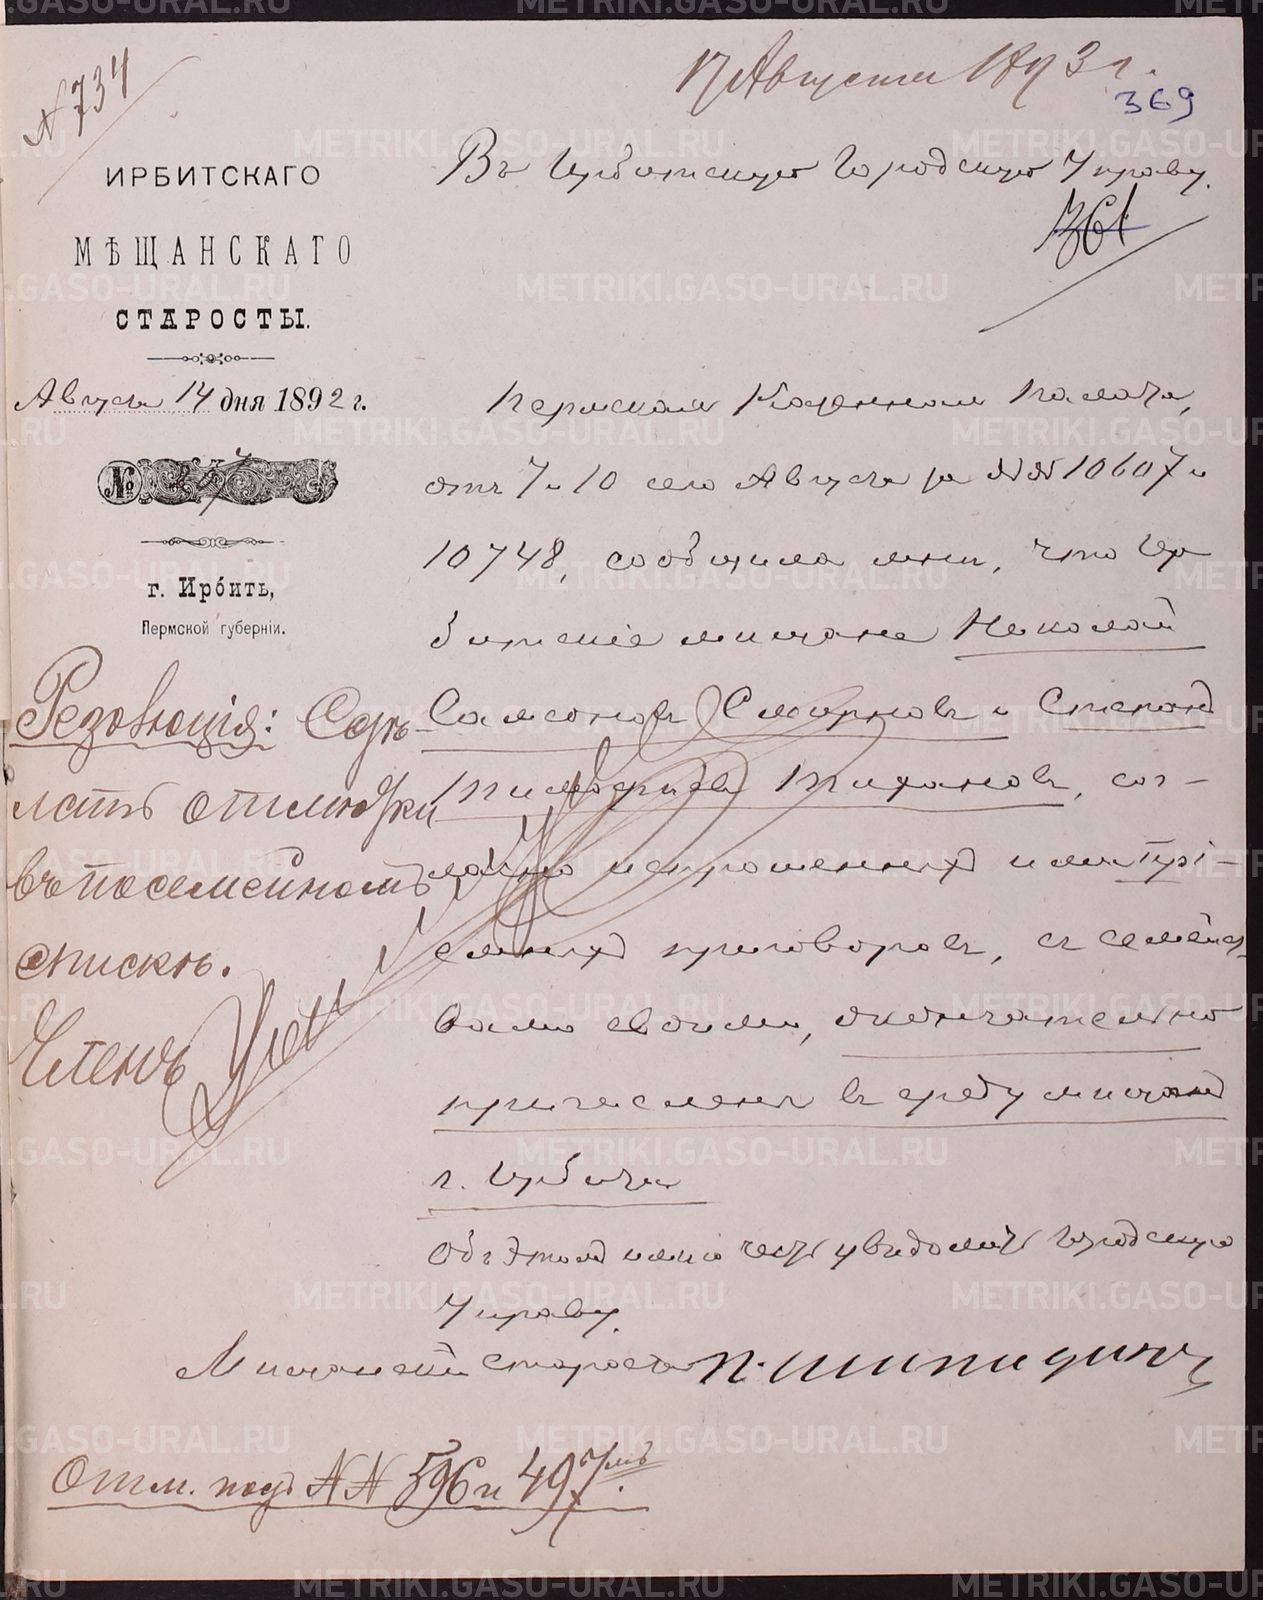 № 734
17 Августа 1893 г.
369
ИРБИТСКАГО
МѢЩАНСКАГО
СТАРОСТЫ.
Августа 14 дня 1892 г.
№
г. Ирбитъ,
Пермской губерніи.
Въ Ирбитскую Городскую Управу.
361
Пермская Казенная Палата,
отъ 7 и 10 сего Августа за №№ 10607 и
10748, сообщила мнѣ, что Ир
битскіе мѣщане Николай
Самсоновъ Смирновъ и Степанъ
Тимофѣевъ Тихановъ, сог-
ласно испрошенныхъ ими Прі-
емныхъ приговоровъ, съ семейст
вами своими, окончательно
причислены въ среду мѣщанъ
г. Ирбита
Объ этомъ имѣю честь увѣдомить Городскую
Управу.
Мѣщанскій Староста П. Шипицинъ
Резолюція: Сдѣ-
лать отмѣтки
въ посемейномъ
спискѣ.
Членъ
Отм. подъ №№ 596 и 497мъ.
METRIKI.GASO-URAL.RU